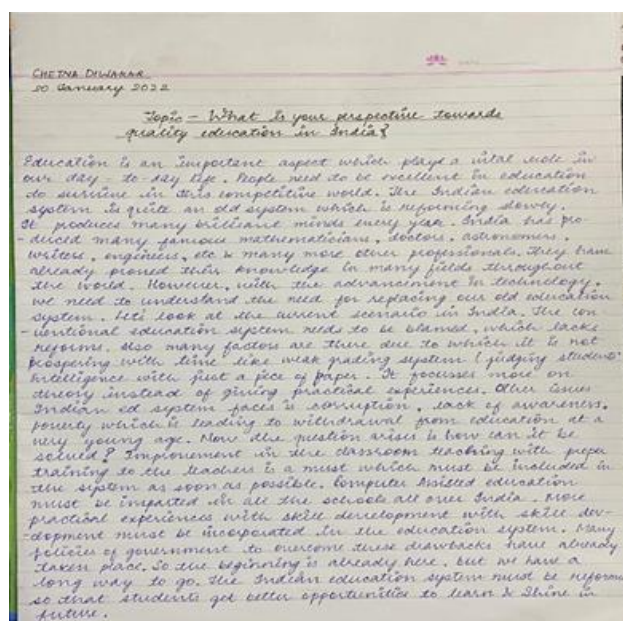 CHETNA DIWAKAR
20 January 2022
Topic - What is your perspective towards
quality education in India?
Education is an important aspect which plays a vital role in
our day-to-day life. People need to be excellent in education
to survive in this competitive world. The Indian education
system is quite an old system which is reforming slowly.
It produces many brilliant minds every year. India has pro-
-duced many famous mathematicians, doctors, astronomers,
writers, engineers, etc & many more other professionals. They have
already proved their knowledge in many fields throughout
the world. However, with the advancement in technology,
we need to understand the need for replacing our old education
system. Let's look at the current scenario in India. The con-
-ventional education system needs to be blamed, which lacks
reforms. Also many factors are there due to which it is not
prospering with time like weak grading system (judging students'
intelligence with just a piece of paper. It focusses more on
theory instead of giving practical experiences. Other issues
Indian ed system faces is corruption, lack of awareness,
poverty which is leading to withdrawal from education at a
very young age. Now the question arises is how can it be
solved? Improvement in the classroom teaching with proper
training to the teachers is a must which must be included in
the system as soon as possible. Computer Assisted education
must be imparted in all the schools all over India. More
practical experiences with skill development with skill dev-
-elopment must be incorporated in the education system. Many
policies of government to overcome these drawbacks have already
taken place. So the beginning is already here, but we have a
long way to go. The Indian education system must be reform
so that students get better opportunities to learn & shine in
future.